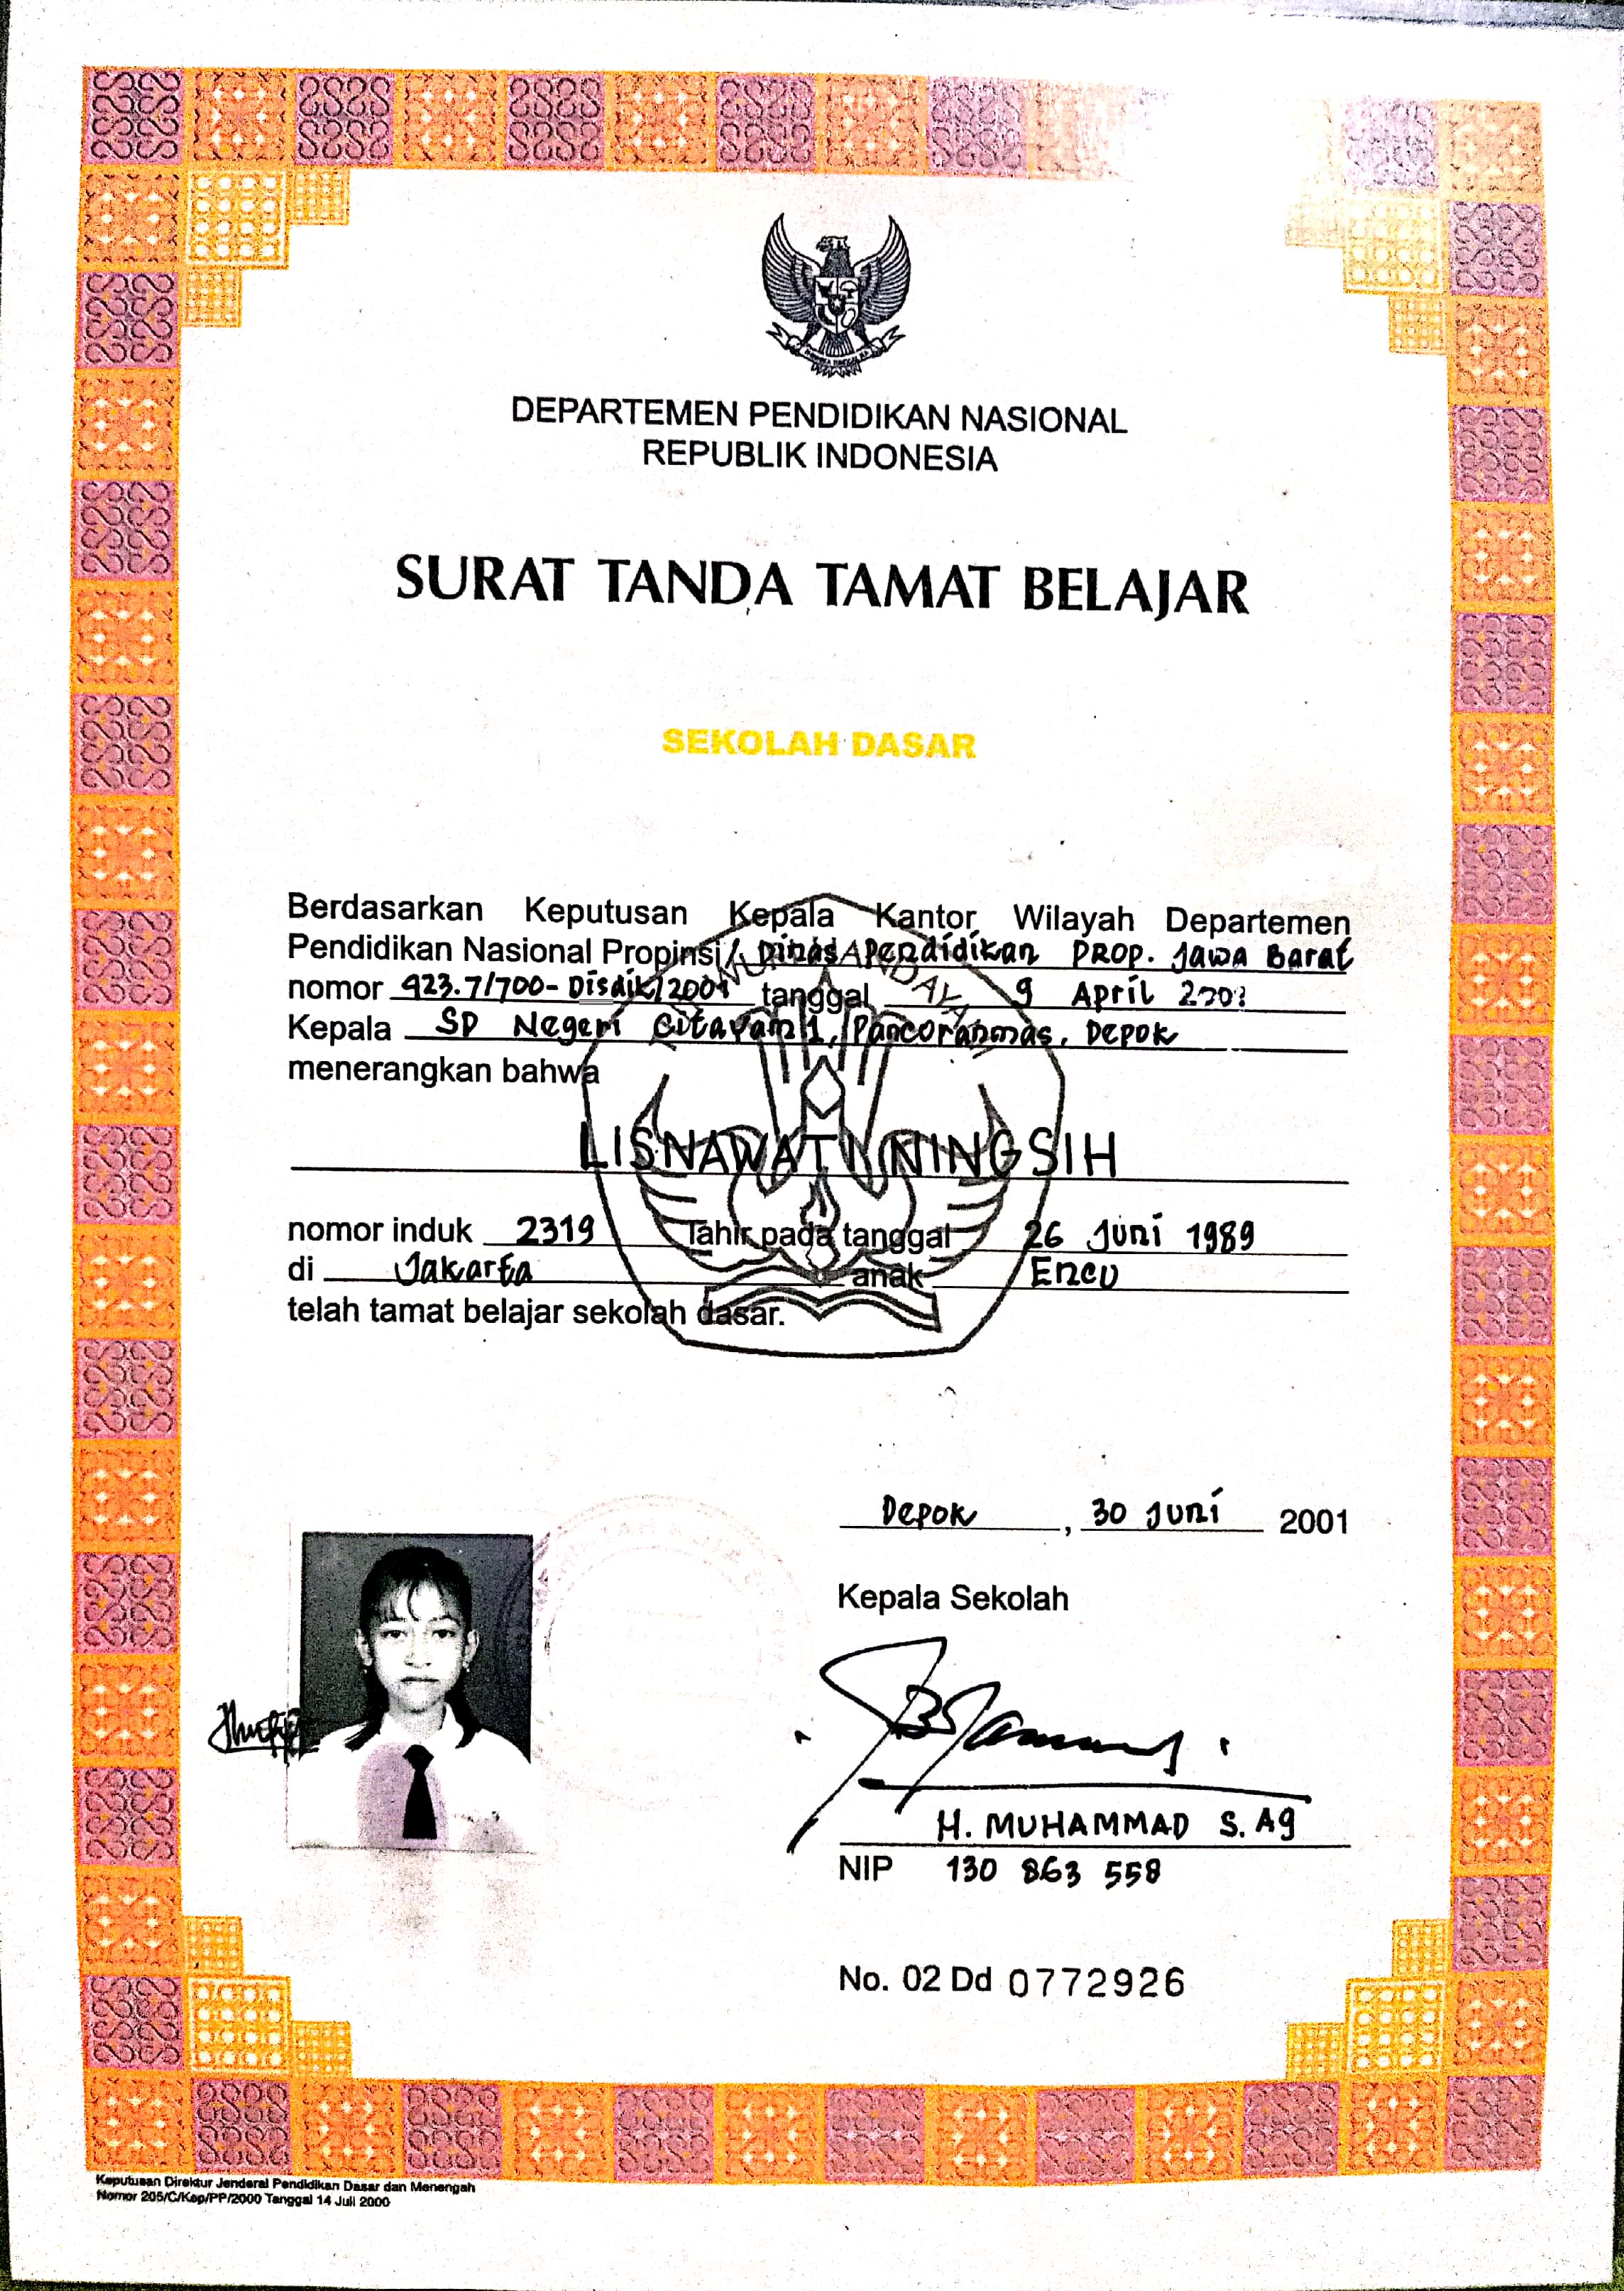 DEPARTEMEN PENDIDIKAN NASIONAL
REPUBLIK INDONESIA
SURAT TANDA TAMAT BELAJAR
SEKOLAH DASAR
Berdasarkan Keputusan Kepala Kantor Wilayah Departemen
Pendidikan Nasional Propinsi / Dinas Pendidikan PROP. Jawa Barat
nomor 423.7/700-Disdik/2001 tanggal 9 April 2001
Kepala SD Negeri Citayam 1, Pancoranmas, Depok
menerangkan bahwa
LISNAWATI NINGSIH
nomor induk 2319 lahir pada tanggal 26 Juni 1989
di Jakarta anak Encu
telah tamat belajar sekolah dasar.
Depok, 30 Juni 2001
Kepala Sekolah
H. MUHAMMAD S. Ag
NIP 130 863 558
No. 02 Dd 0772926
Keputusan Direktur Jenderal Pendidikan Dasar dan Menengah
Nomor 205/C/Kep/PP/2000 Tanggal 14 Juli 2000